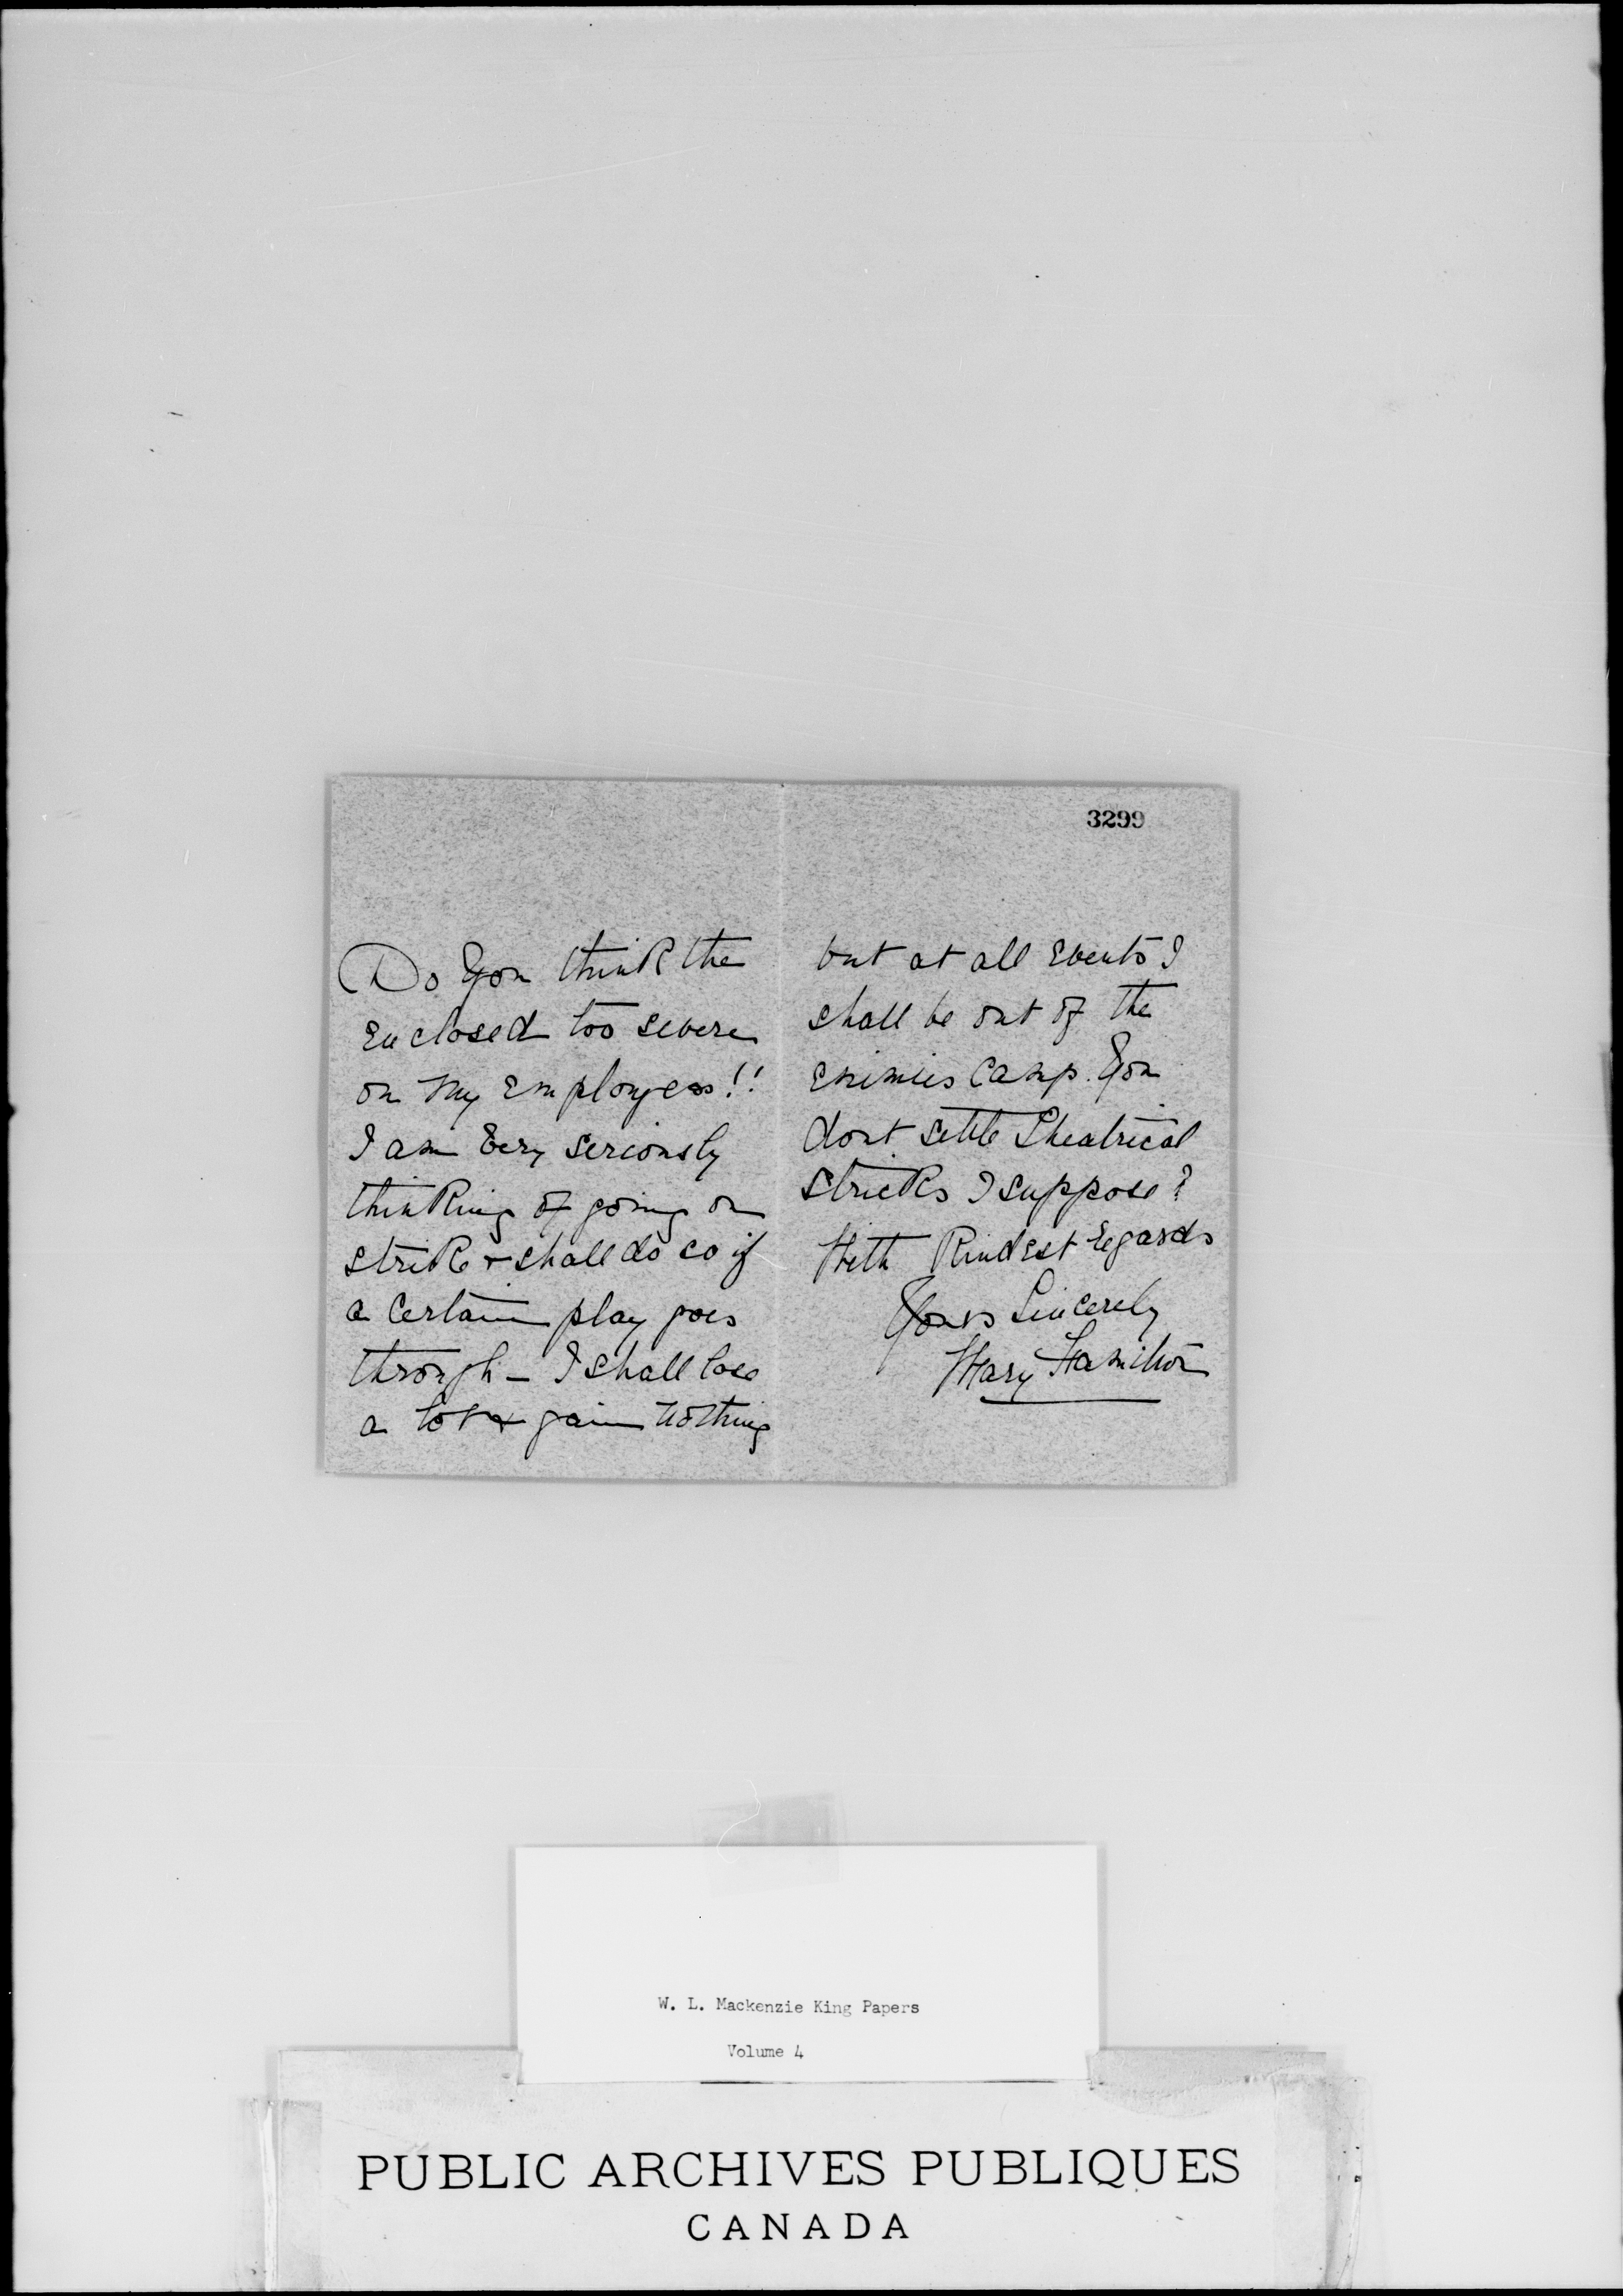 3299
Do you think the
enclosed too severe
on my employers!!
I am very seriously
thinking of going on
strike + shall do so if
a certain play goes
through - I shall lose
a lot + gain nothing
but at all events I
shall be out of the
enimies camp. You
dont settle Theatrical
stricks I suppose?
With kindest regards
Yours Sincerely
Mary Hamilton
W. L. Mackenzie King Papers
Volume 4
PUBLIC ARCHIVES PUBLIQUES
CANADA